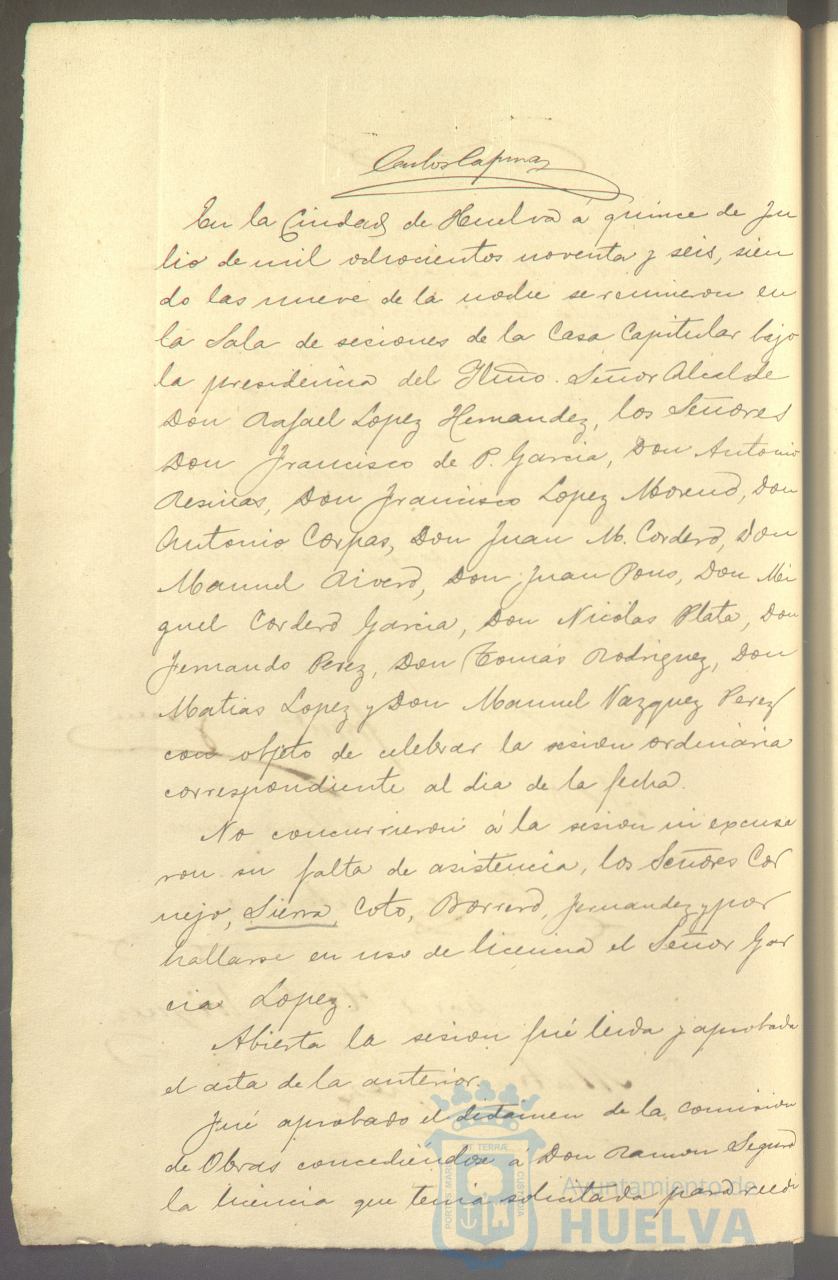 Carlos Capmaz
En la Ciudad de Huelva á quince de Ju
lio de mil ochocientos noventa y seis, sien
do las nueve de la noche se reunieron en
la Sala de sesiones de la Casa Capitular bajo
la presidencia del Iltmo. Señor Alcalde
Don Rafael Lopez Hernandez, los Señores
Don Francisco de P. Garcia, Don Antonio
Resinas, Don Francisco Lopez Moreno, Don
Antonio Corpas, Don Juan M. Cordero, Don
Manuel Rivero, Don Juan Pons, Don Mi
guel Cordero Garcia, Don Nicolas Plata, Don
Fernando Perez, Don Tomás Rodriguez, Don
Matias Lopez y Don Manuel Vazquez Perez
con objeto de celebrar la sesion ordinaria
correspondiente al dia de la fecha.
No concurrieron á la sesion ni excusa
ron su falta de asistencia, los Señores Cor
nejo, Sierra, Coto, Borrero, Fernandez y por
hallarse en uso de licencia el Señor Gar
cia Lopez.
Abierta la sesion fué leida y aprobada
el acta de la anterior.
Fué aprobado el dictamen de la comision
de Obras concediéndose á Don Ramon Seguro
la licencia que tenia solicitada para reedi
PORTUS MARIS ET TERRÆ CUSTODIA
Ayuntamiento de
HUELVA